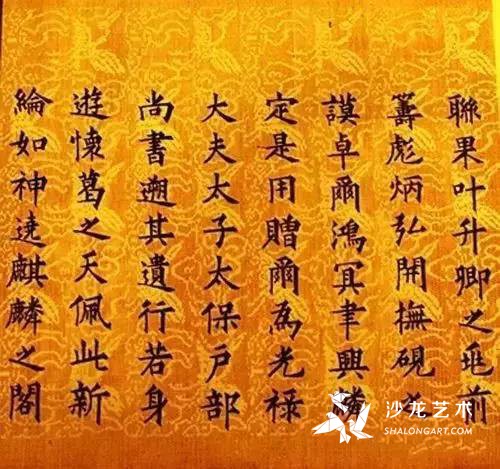 聯果叶升卿之兆前
籌彪炳弘開撫硯
謨卓爾鴻冥聿興
定是用贈爾為光祿
大夫太子太保户部
尚書遡其遺行若身
遊懷葛之天佩此新
綸如神遶麒麟之閣
沙龙艺术
SHALONGART.COM